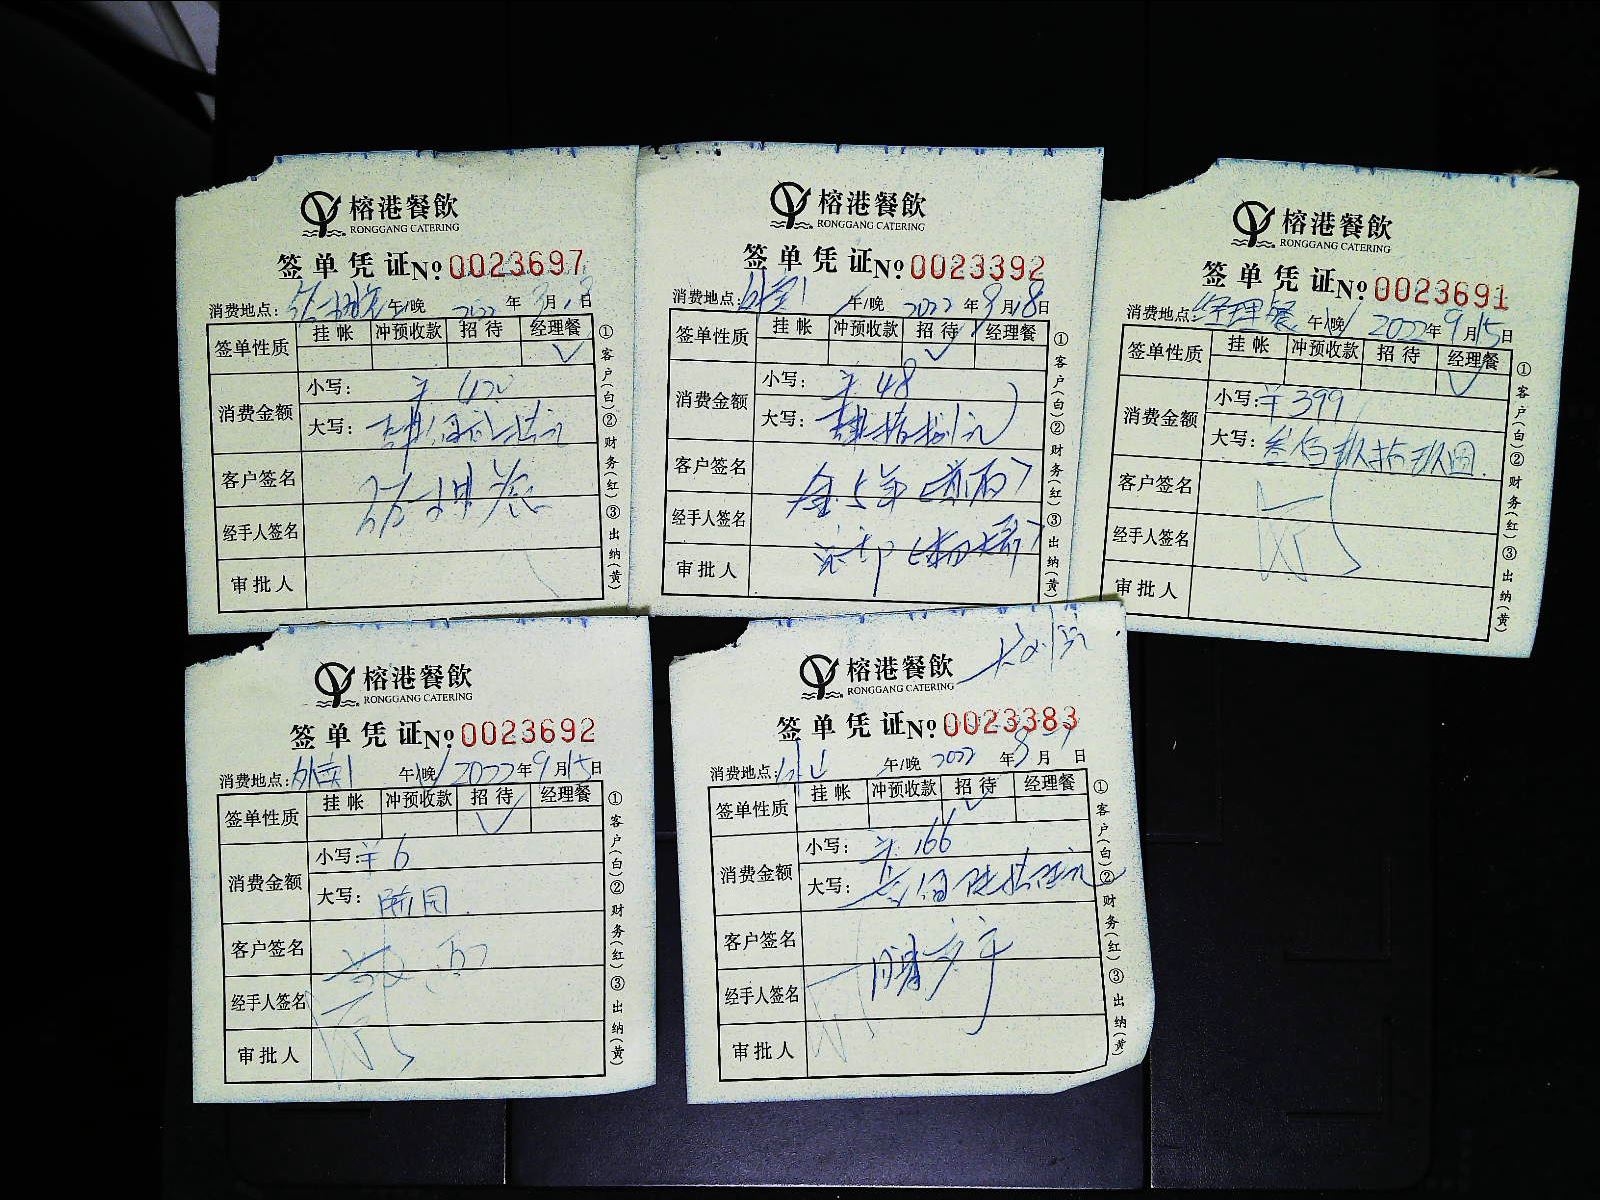 榕港餐飲
RONGGANG CATERING
签单凭证 № 0023697
消费地点: 午/晚 2022年 月 日
签单性质 挂帐 冲预收款 招待 经理餐
√
消费金额 小写:
大写:
客户签名
经手人签名
审批人
①客户(白)②财务(红)③出纳(黄)
榕港餐飲
RONGGANG CATERING
签单凭证 № 0023392
消费地点: 外卖1 午/晚 2022年 月18日
签单性质 挂帐 冲预收款 招待 经理餐
√
消费金额 小写: 48
大写: 肆拾捌元
客户签名
经手人签名
审批人
①客户(白)②财务(红)③出纳(黄)
榕港餐飲
RONGGANG CATERING
签单凭证 № 0023691
消费地点: 经理餐 午/晚 2022年9月15日
签单性质 挂帐 冲预收款 招待 经理餐
√
消费金额 小写: ¥399
大写: 叁佰玖拾玖圆
客户签名
经手人签名
审批人
①客户(白)②财务(红)③出纳(黄)
榕港餐飲
RONGGANG CATERING
签单凭证 № 0023692
消费地点: 外卖1 午/晚 2022年9月15日
签单性质 挂帐 冲预收款 招待 经理餐
√
消费金额 小写: ¥6
大写:
客户签名
经手人签名
审批人
①客户(白)②财务(红)③出纳(黄)
榕港餐飲
RONGGANG CATERING
签单凭证 № 0023383
消费地点: 午/晚 2022年 月 日
签单性质 挂帐 冲预收款 招待 经理餐
√
消费金额 小写: 166
大写: 壹佰陆拾陆元
客户签名
经手人签名
审批人
①客户(白)②财务(红)③出纳(黄)